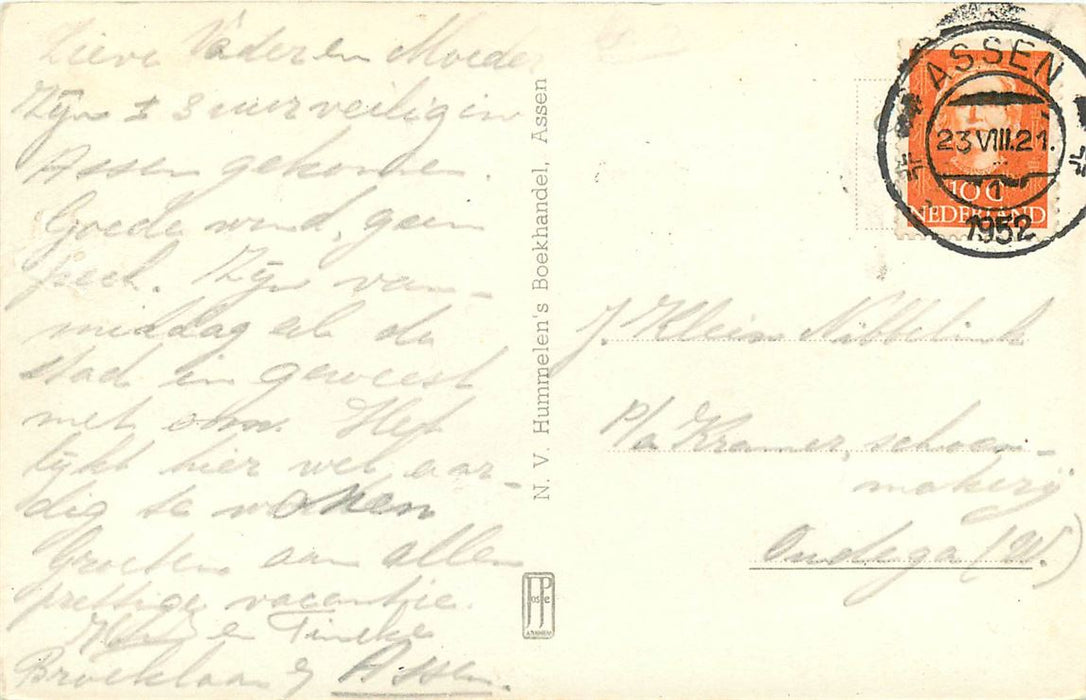 Lieve Vader en Moeder
Zijn ± 3 uur veilig in
Assen gekomen.
Goede wind, geen
pech. Zijn van-
middag al de
stad in geweest
met om. Het
lijkt hier wel aar-
dig te wonen
Groeten aan allen
prettige vacantie.
en Tineke
Broeklaan Assen.
N. V. Hummelen's Boekhandel, Assen
ASSEN
23 VIII.21.
1952
10 C
NEDERLAND
J. Klein Nibbelink
p/a Kramer, schoen-
makerij
Oudega (W.)